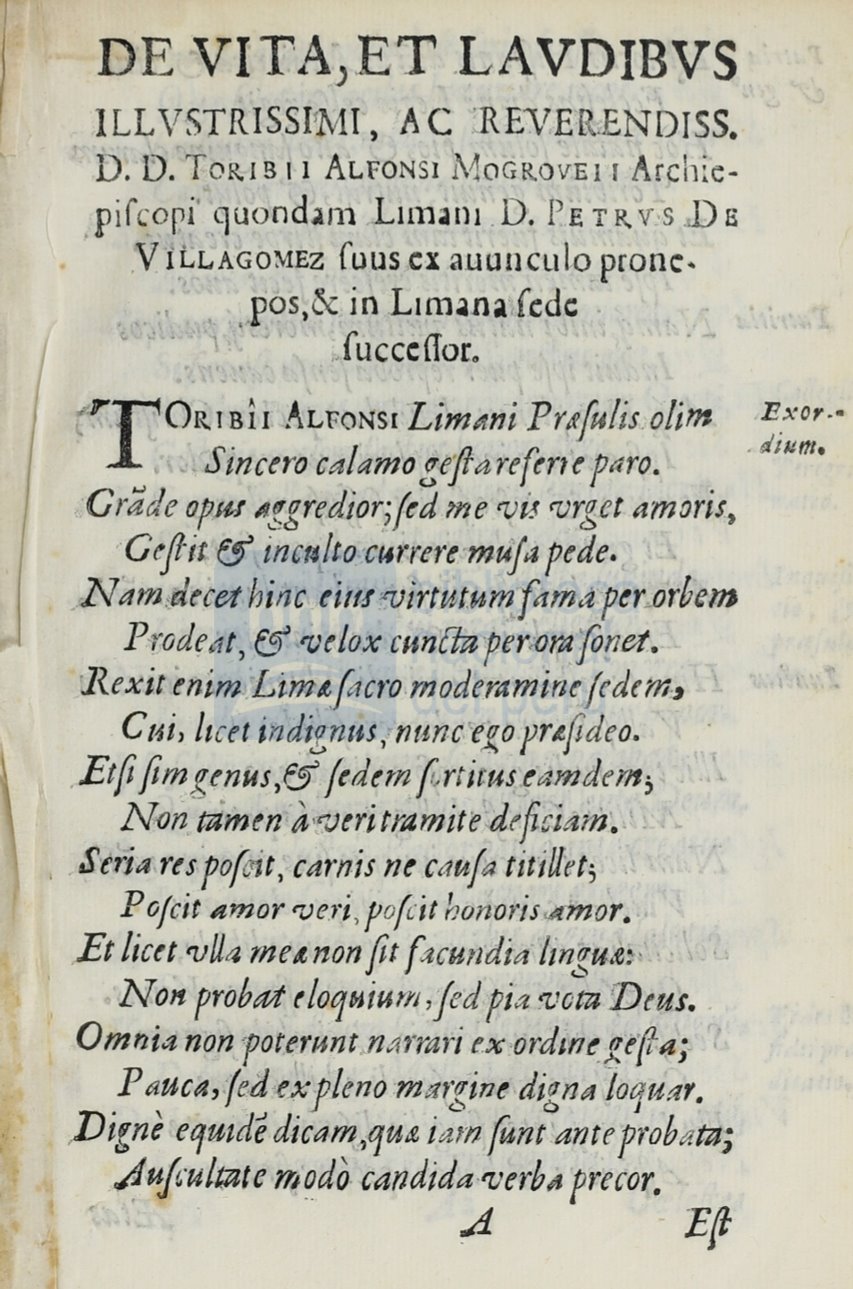 DE VITA, ET LAVDIBVS
ILLVSTRISSIMI, AC REVERENDISS.
D. D. TORIBII ALFONSI MOGROVEII Archie-
piſcopi quondam Limani D. PETRVS DE
VILLAGOMEZ ſuus ex auunculo prone-
pos, & in Limana ſede
ſucceſſor.
TORIBîI ALFONSI Limani Præſulis olim
Exor-
Sincero calamo geſta referre paro.
dium.
Grãde opus aggredior; ſed me vis vrget amoris,
Geſtit & inculto currere muſa pede.
Nam decet hinc eius virtutum fama per orbem
Prodeat, & velox cuncta per ora ſonet.
Rexit enim Limæ ſacro moderamine ſedem,
Cui, licet indignus, nunc ego præſideo.
Etſi ſim genus, & ſedem ſortitus eamdem;
Non tamen à veri tramite deficiam.
Seria res poſcit, carnis ne cauſa titillet;
Poſcit amor veri, poſcit honoris amor.
Et licet vlla meæ non ſit facundia linguæ:
Non probat eloquium, ſed pia vota Deus.
Omnia non poterunt narrari ex ordine geſta;
Pauca, ſed ex pleno margine digna loquar.
Dignè equidẽ dicam, quæ iam ſunt ante probata;
Auſcultate modò candida verba precor.
A
Eſt